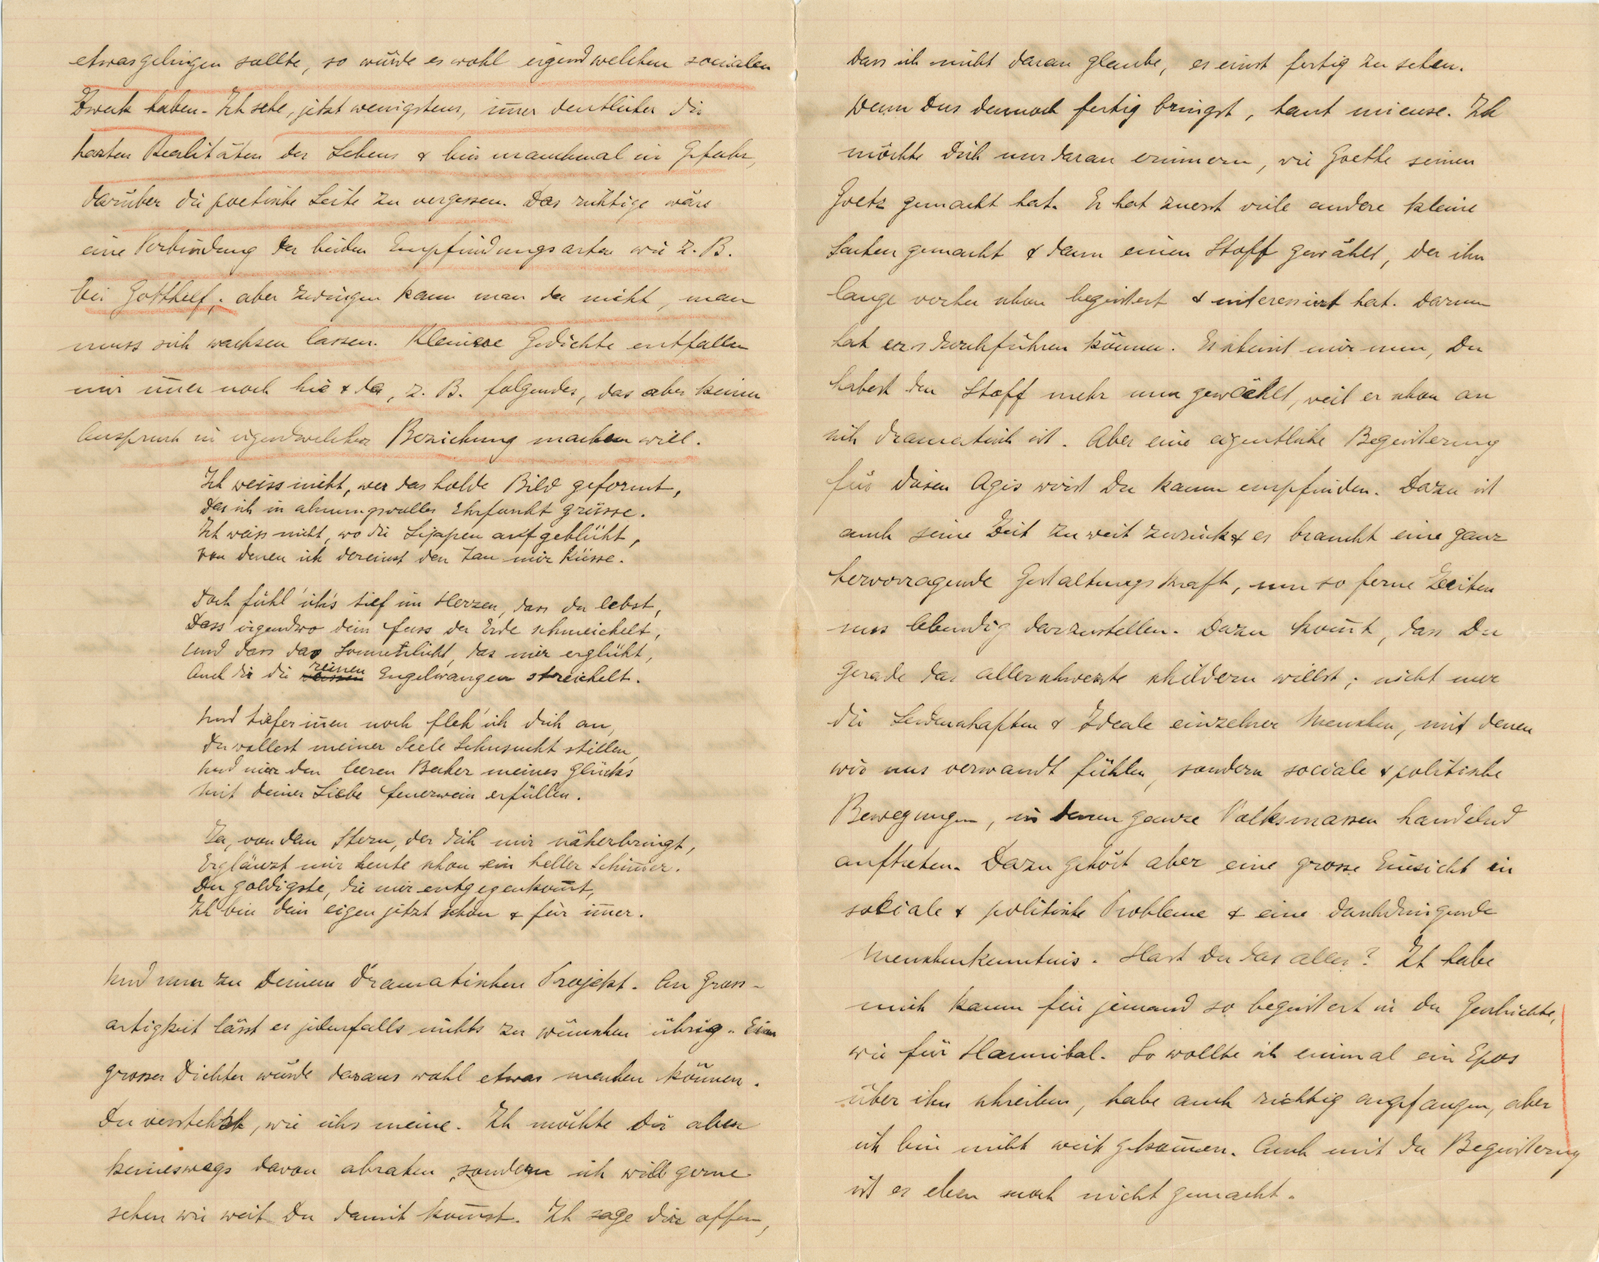 etwas gelingen sollte, so würde es wohl irgend welchen socialen
Zweck haben. Ich sehe, jetzt wenigstens, im̄er deutlicher die
harten Realitäten des Lebens & bin manchmal in Gefahr,
darüber die poetische Seite zu vergessen. Das richtige wäre
eine Verbindung der beiden Empfindungsarten wie z. B.
bei Gotthelf; aber zwingen kann man da nicht, man
muss sich wachsen lassen. Kleinere Gedichte entfallen
mir im̄er noch hie & da, z. B. folgendes, das aber keinen
Anspruch in irgendwelcher Beziehung machen will.
Ich weiss nicht, wer das holde Bild geformt,
Das ich in ahnungsvoller Ehrfurcht grüsse.
Ich weiss nicht, wo die Lippen aufgeblüht,
von denen ich dereinst den Tau mir küsse.
Doch fühl' ich's tief im Herzen, dass du lebst,
Dass irgendwo dein Fuss der Erde schmeichelt,
Und dass das Sonnenlicht, das mir erglüht,
Auch dir die reinen Engelwangen streichelt.
Und tiefer in̄en noch fleh' ich dich an,
Du wollest meiner Seele Sehnsucht stillen,
Und mir den leeren Becher meines Glücks
Mit deiner Liebe Feuerwein erfüllen.
Ja, von dem Stern, der dich mir näherbringt,
Erglänzt mir heute schon ein heller Schim̄er.
Du goldigste, die mir entgegenkom̄t,
Ich bin dein eigen jetzt schon & für im̄er.
Und nun zu Deinem dramatischen Projekt. An Gross-
artigkeit lässt es jedenfalls nichts zu wünschen übrig. Ein
grosser Dichter würde daraus wohl etwas machen können.
Du verstehst, wie ichs meine. Ich möchte Dir aber
keineswegs davon abraten, sondern ich will gerne
sehen wie weit Du damit kom̄st. Ich sage Dir offen,
dass ich nicht daran glaube, es einst fertig zu sehen.
Wenn Dus dennoch fertig bringst, tant mieuse. Ich
möchte Dich nur daran erinnern, wie Goethe seinen
Goetz gemacht hat. Er hat zuerst viele andere kleine
Sachen gemacht & dann einen Stoff gewählt, der ihn
lange vorher schon begeistert & interessirt hat. Darum
hat ers durchführen können. Es scheint mir nun, Du
habest den Stoff mehr nur gewählt, weil er schon an
sich dramatisch ist. Aber eine eigentliche Begeisterung
für diesen Agis wirst Du kaum empfinden. Dazu ist
auch seine Zeit zu weit zurück & es braucht eine ganz
hervorragende Gestaltungskraft, um so ferne Zeiten
uns lebendig darzustellen. Dazu kom̄t, dass Du
gerade das allerschwerste schildern willst; nicht nur
die Leidenschaften & Ideale einzelner Menschen, mit denen
wir uns verwandt fühlen, sondern sociale & politische
Bewegungen, in denen ganze Volksmassen handelnd
auftreten. Dazu gehört aber eine grosse Einsicht in
sociale & politische Probleme & eine durchdringende
Menschenkenntnis. Hast Du das alles? Ich habe
mich kaum für jemand so begeistert in der Geschichte,
wie für Hannibal. So wollte ich einmal ein Epos
über ihn schreiben, habe auch richtig angefangen, aber
ich bin nicht weit gekom̄en. Auch mit der Begeisterung
ist es eben noch nicht gemacht.